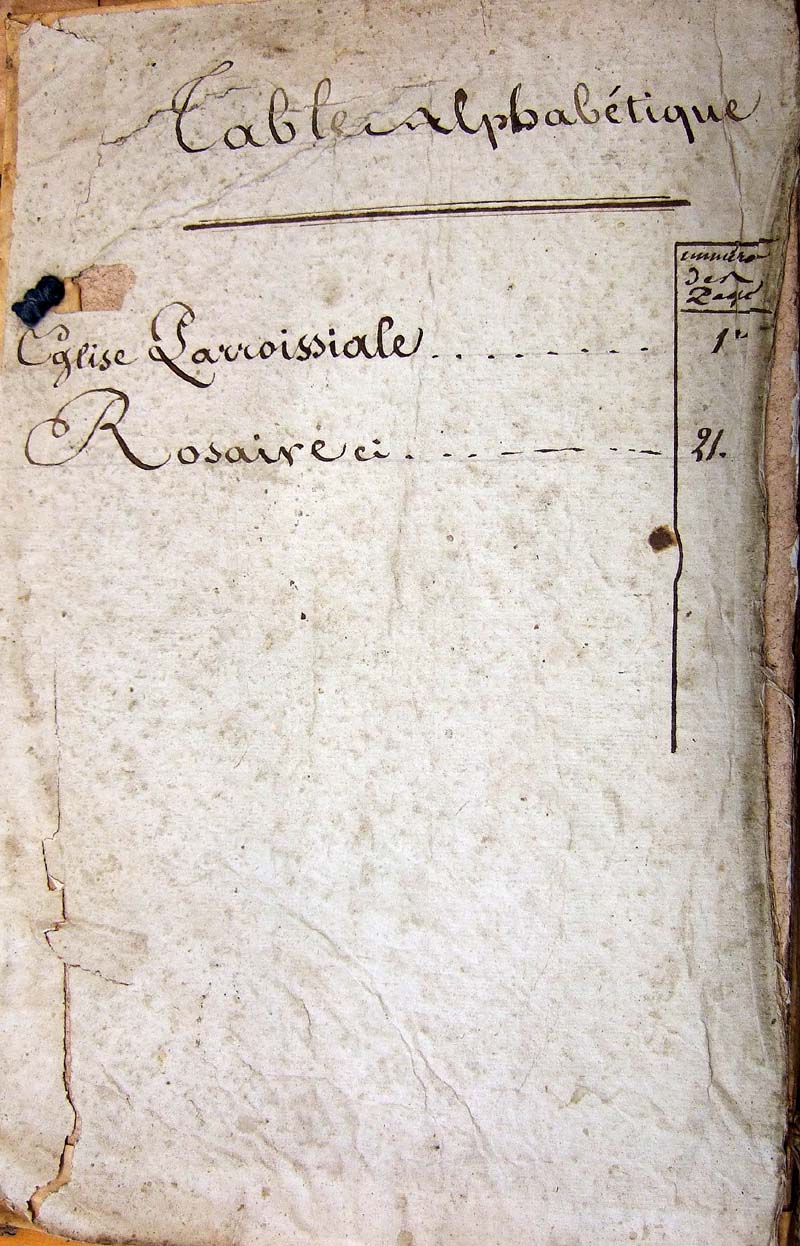 Table alphabétique
numéro
des
Page
Eglise Parroissiale
1er
Rosaire ci
21.